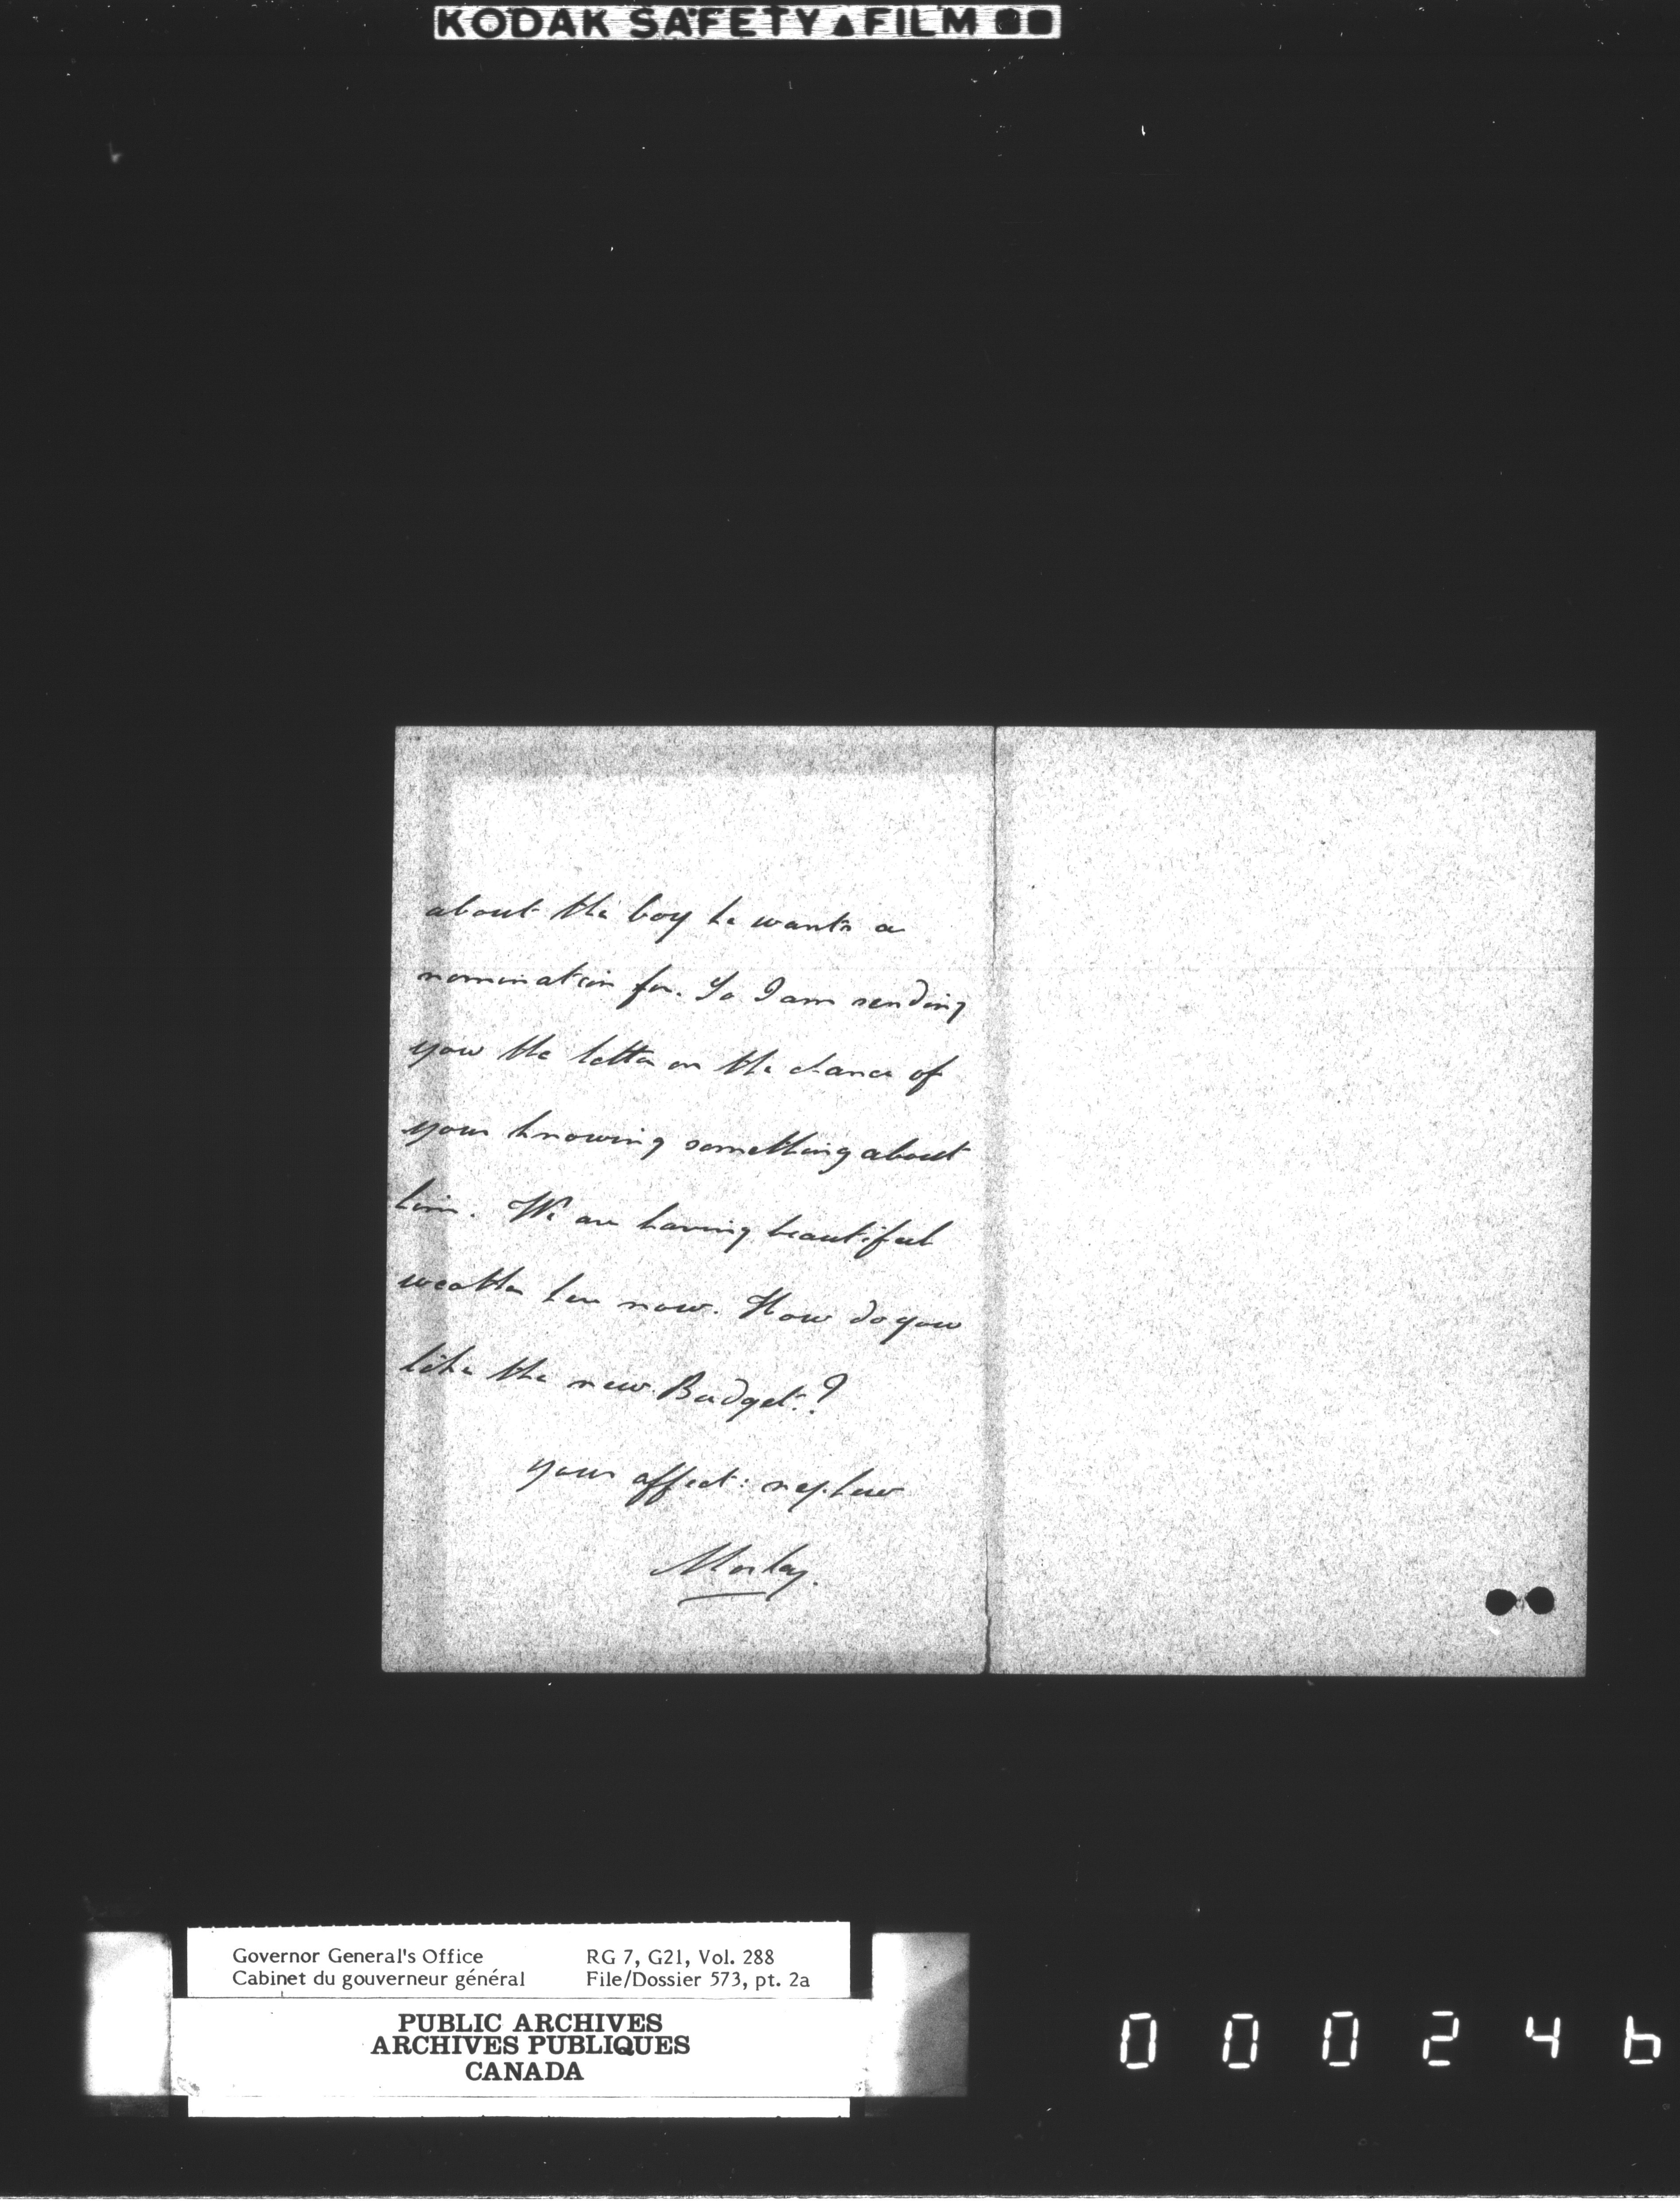 KODAK SAFETY FILM
about the boy he wants a
nomination for. So I am sending
you the letter on the chance of
your knowing something about
him. We are having beautiful
weather here now. How do you
like the new Budget?
your affect: nephew
Morley.
Governor General's Office RG 7, G21, Vol. 288
Cabinet du gouverneur général File/Dossier 573, pt. 2a
PUBLIC ARCHIVES
ARCHIVES PUBLIQUES
CANADA
000246